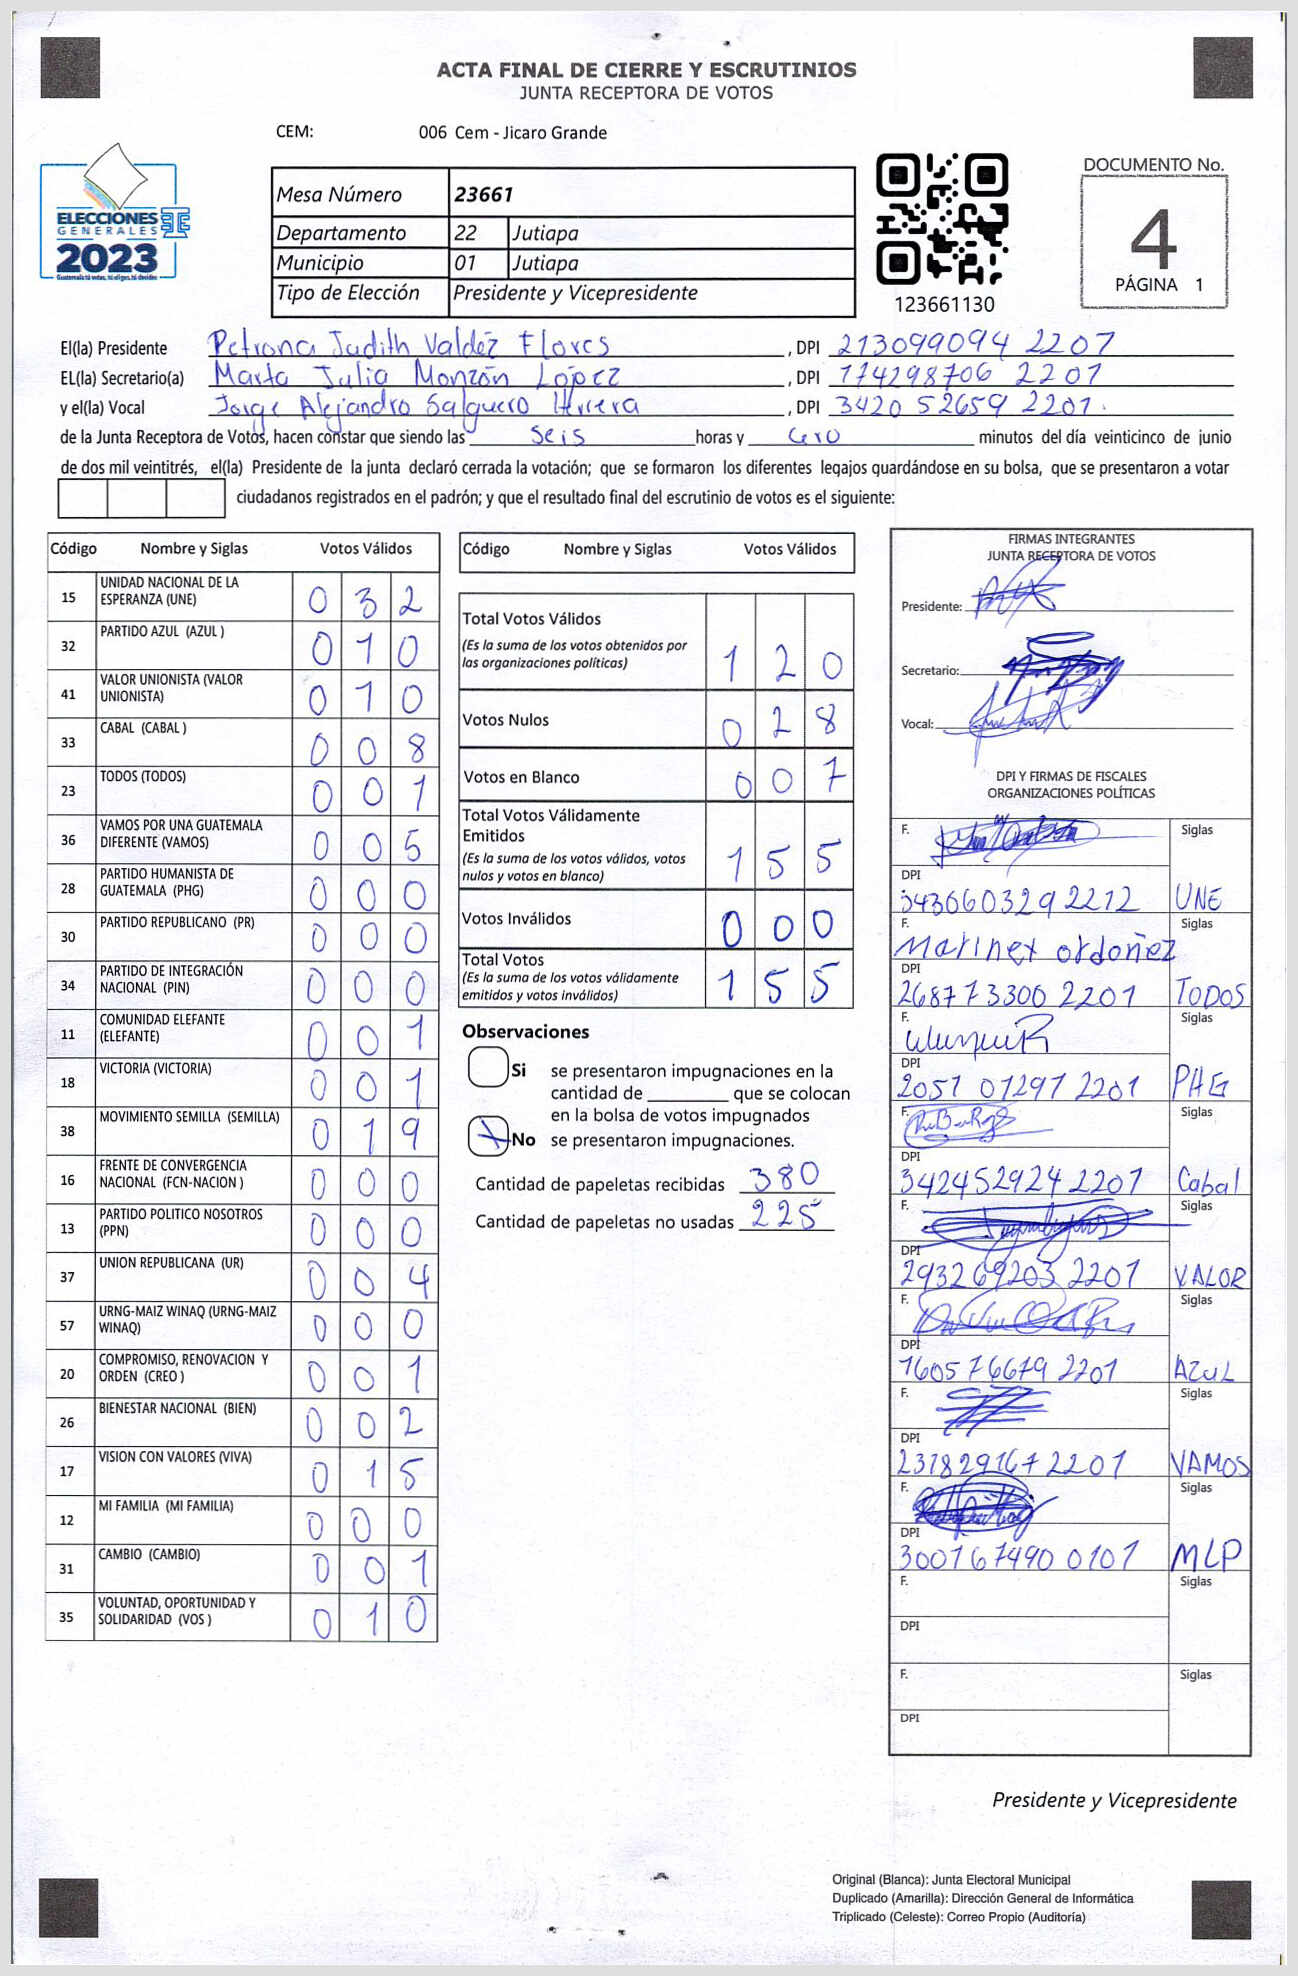 ACTA FINAL DE CIERRE Y ESCRUTINIOS
JUNTA RECEPTORA DE VOTOS
CEM: 006 Cem - Jicaro Grande
ELECCIONES
GENERALES
2023
Guatemala tú votas, tú eliges, tú decides
Mesa Número 23661
Departamento 22 Jutiapa
Municipio 01 Jutiapa
Tipo de Elección Presidente y Vicepresidente
123661130
DOCUMENTO No.
4
PÁGINA 1
El(la) Presidente Petrona Judith Valdéz Flores, DPI 213099094 2207
EL(la) Secretario(a) Marta Julia Monzón López, DPI 174298706 2201
y el(la) Vocal Jorge Alejandro Salguero Herrera, DPI 3420 52659 2201.
de la Junta Receptora de Votos, hacen constar que siendo las seis horas y cero minutos del día veinticinco de junio
de dos mil veintitrés, el(la) Presidente de la junta declaró cerrada la votación; que se formaron los diferentes legajos guardándose en su bolsa, que se presentaron a votar
ciudadanos registrados en el padrón; y que el resultado final del escrutinio de votos es el siguiente:
Código Nombre y Siglas Votos Válidos
15 UNIDAD NACIONAL DE LA ESPERANZA (UNE) 0 3 2
32 PARTIDO AZUL (AZUL ) 0 1 0
41 VALOR UNIONISTA (VALOR UNIONISTA) 0 1 0
33 CABAL (CABAL ) 0 0 8
23 TODOS (TODOS) 0 0 1
36 VAMOS POR UNA GUATEMALA DIFERENTE (VAMOS) 0 0 5
28 PARTIDO HUMANISTA DE GUATEMALA (PHG) 0 0 0
30 PARTIDO REPUBLICANO (PR) 0 0 0
34 PARTIDO DE INTEGRACIÓN NACIONAL (PIN) 0 0 0
11 COMUNIDAD ELEFANTE (ELEFANTE) 0 0 1
18 VICTORIA (VICTORIA) 0 0 1
38 MOVIMIENTO SEMILLA (SEMILLA) 0 1 9
16 FRENTE DE CONVERGENCIA NACIONAL (FCN-NACION ) 0 0 0
13 PARTIDO POLITICO NOSOTROS (PPN) 0 0 0
37 UNION REPUBLICANA (UR) 0 0 4
57 URNG-MAIZ WINAQ (URNG-MAIZ WINAQ) 0 0 0
20 COMPROMISO, RENOVACION Y ORDEN (CREO ) 0 0 1
26 BIENESTAR NACIONAL (BIEN) 0 0 2
17 VISION CON VALORES (VIVA) 0 1 5
12 MI FAMILIA (MI FAMILIA) 0 0 0
31 CAMBIO (CAMBIO) 0 0 1
35 VOLUNTAD, OPORTUNIDAD Y SOLIDARIDAD (VOS ) 0 1 0
Código Nombre y Siglas Votos Válidos
Total Votos Válidos
(Es la suma de los votos obtenidos por
las organizaciones políticas) 1 2 0
Votos Nulos 0 2 8
Votos en Blanco 0 0 7
Total Votos Válidamente
Emitidos
(Es la suma de los votos válidos, votos
nulos y votos en blanco) 1 5 5
Votos Inválidos 0 0 0
Total Votos
(Es la suma de los votos válidamente
emitidos y votos inválidos) 1 5 5
Observaciones
Si se presentaron impugnaciones en la
cantidad de ________ que se colocan
en la bolsa de votos impugnados
No se presentaron impugnaciones.
Cantidad de papeletas recibidas 380
Cantidad de papeletas no usadas 225
FIRMAS INTEGRANTES
JUNTA RECEPTORA DE VOTOS
Presidente:
Secretario:
Vocal:
DPI Y FIRMAS DE FISCALES
ORGANIZACIONES POLÍTICAS
F. Siglas
DPI
343060329 2212 UNE
F. Siglas
Marinex ordoñez
DPI
268773300 2201 TODOS
F. Siglas
DPI
2051 01297 2201 PHG
F. Siglas
DPI
342452924 2201 Cabal
F. Siglas
DPI
293269203 2201 VALOR
F. Siglas
DPI
160576679 2201 AZUL
F. Siglas
DPI
231829167 2201 VAMOS
F. Siglas
DPI
300167490 0101 MLP
F. Siglas
DPI
F. Siglas
DPI
Presidente y Vicepresidente
Original (Blanca): Junta Electoral Municipal
Duplicado (Amarilla): Dirección General de Informática
Triplicado (Celeste): Correo Propio (Auditoría)